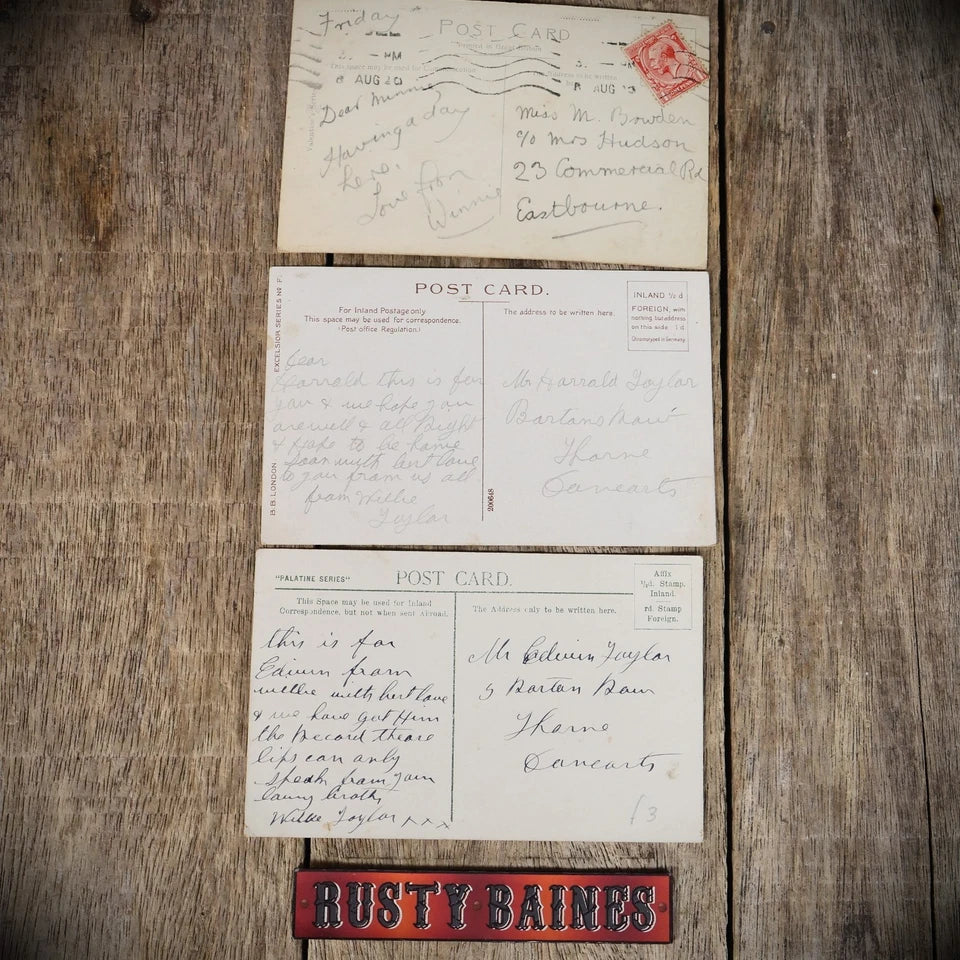 Friday
POST CARD
PM
8 AUG 20
AUG
Dear Minnie
Having a day
here.
Love from
Winnie
Miss M. Bowden
c/o Mrs Hudson
23 Commercial Rd
Eastbourne.
POST CARD.
EXCELSIOR SERIES No F.
B.B. LONDON
For Inland Postage only
This space may be used for correspondence.
(Post office Regulation.)
The address to be written here.
INLAND ½ d
FOREIGN, with
nothing but address
on this side 1 d.
Chromotyped in Germany
Dear
Harrald this is for
you & we hope you
are well & all Right
& Hope to be home
soon with best love
to you from us all
from Willie
Taylor
200648
Mr Harrald Taylor
Bartans
Thorne
"PALATINE SERIES"
POST CARD.
This Space may be used for Inland
Correspondence, but not when sent Abroad.
The Address only to be written here.
Affix
½d. Stamp.
Inland.
rd. Stamp
Foreign.
this is for
Edwin from
willie with best love
& we have got Him
the Record theare
lips can only
speak from your
loving broth
Willie Taylor x x x
Mr Edwin Taylor
5 Bartan
Thorne
£3
RUSTY BAINES